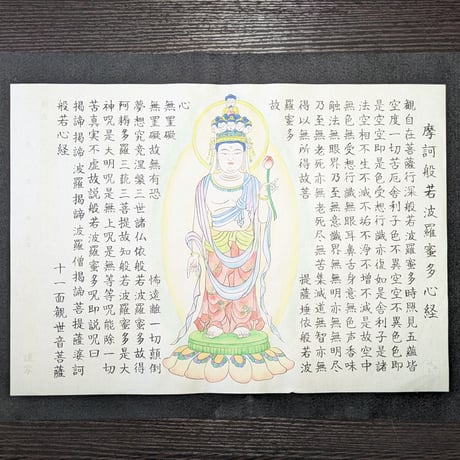 摩訶般若波羅蜜多心経
観自在菩薩行深般若波羅蜜多時照見五蘊皆
空度一切苦厄舎利子色不異空空不異色色即
是空空即是色受想行識亦復如是舎利子是諸
法空相不生不滅不垢不浄不増不減是故空中
無色無受想行識無眼耳鼻舌身意無色声香味
触法無眼界乃至無意識界無無明亦無無明尽
乃至無老死亦無老死尽無苦集滅道無智亦無
得以無所得故菩提薩埵依般若波
羅蜜多
故
心
無罣礙
無罣礙故無有恐怖遠離一切顛倒
夢想究竟涅槃三世諸仏依般若波羅蜜多故得
阿耨多羅三藐三菩提故知般若波羅蜜多是大
神呪是大明呪是無上呪是無等等呪能除一切
苦真実不虚故説般若波羅蜜多呪即説呪曰
掲諦掲諦波羅掲諦波羅僧掲諦菩提薩婆訶
般若心経 十一面観世音菩薩